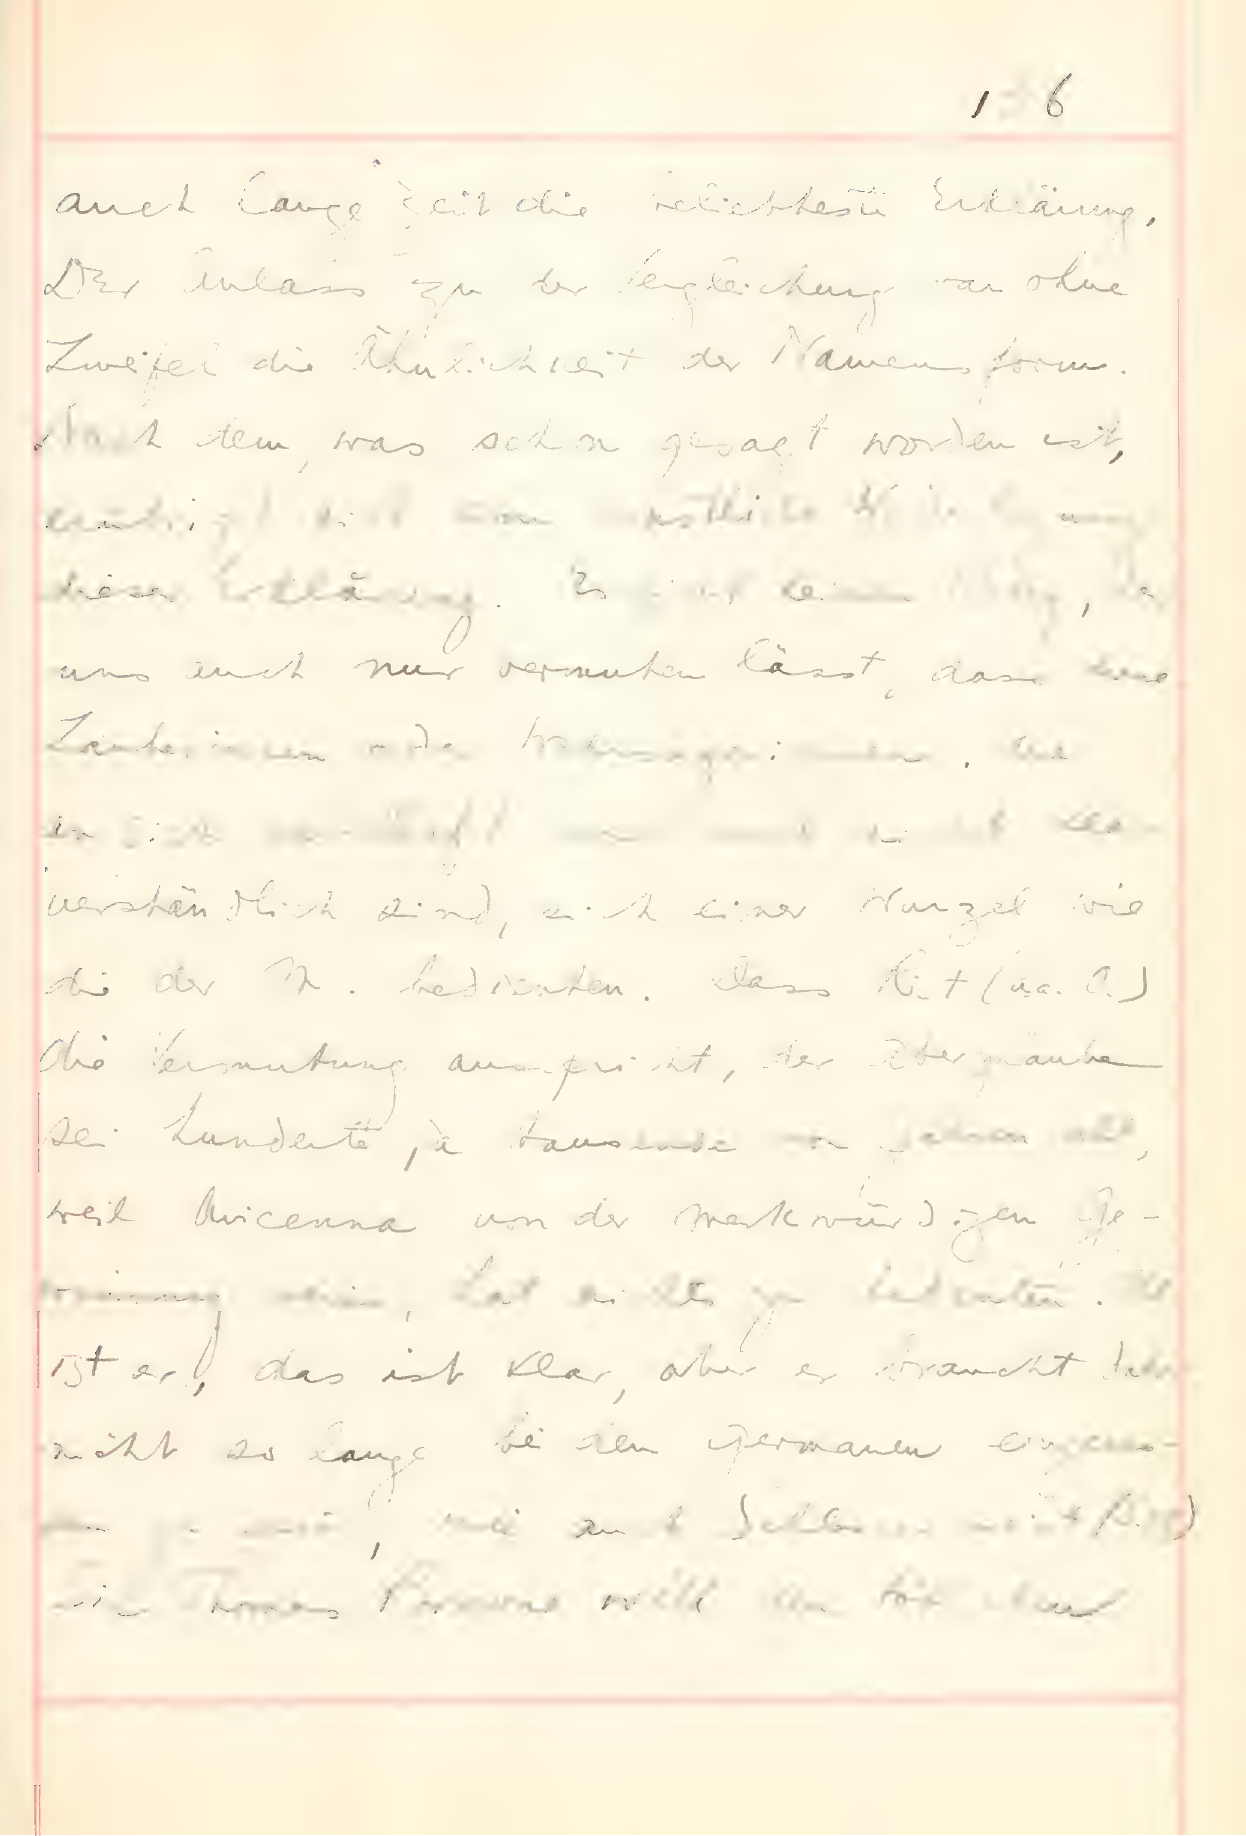 136
auch lange Zeit die beliebteste Erklärung.
Der Anlass zu der Vergleichung war ohne
Zweifel die Ähnlichkeit der Namensform.
Nach dem, was schon gesagt worden ist,
erübrigt sich eine Widerlegung
dieser Erklärung. Es gibt keinen, der
uns auch nur vermuten lässt, dass
Zauberinnen oder
verständlich sind, sich einer Wurzel wie
die der M. bedienten. Dass (a.a.O.)
die Vermutung ausspricht, der Aberglauben
sei hunderte, ja tausende von Jahren alt,
weil Avicenna von der merkwürdigen Ge-
winnung, hat nichts zu bedeuten. Alt
ist er, das ist klar, aber er braucht
nicht so lange bei den Germanen eingeses-
sen zu sein, wie auch meint
Thomas Browne will den